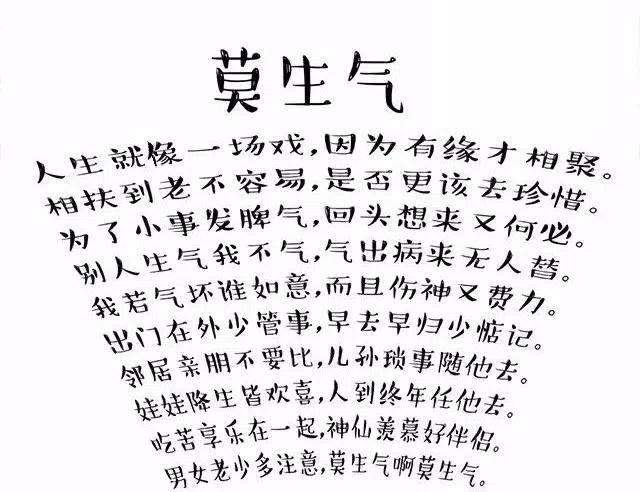 莫生气
人生就像一场戏，因为有缘才相聚。
相扶到老不容易，是否更该去珍惜。
为了小事发脾气，回头想来又何必。
别人生气我不气，气出病来无人替。
我若气坏谁如意，而且伤神又费力。
出门在外少管事，早去早归少惦记。
邻居亲朋不要比，儿孙琐事随他去。
娃娃降生皆欢喜，人到终年任他去。
吃苦享乐在一起，神仙羡慕好伴侣。
男女老少多注意，莫生气啊莫生气。